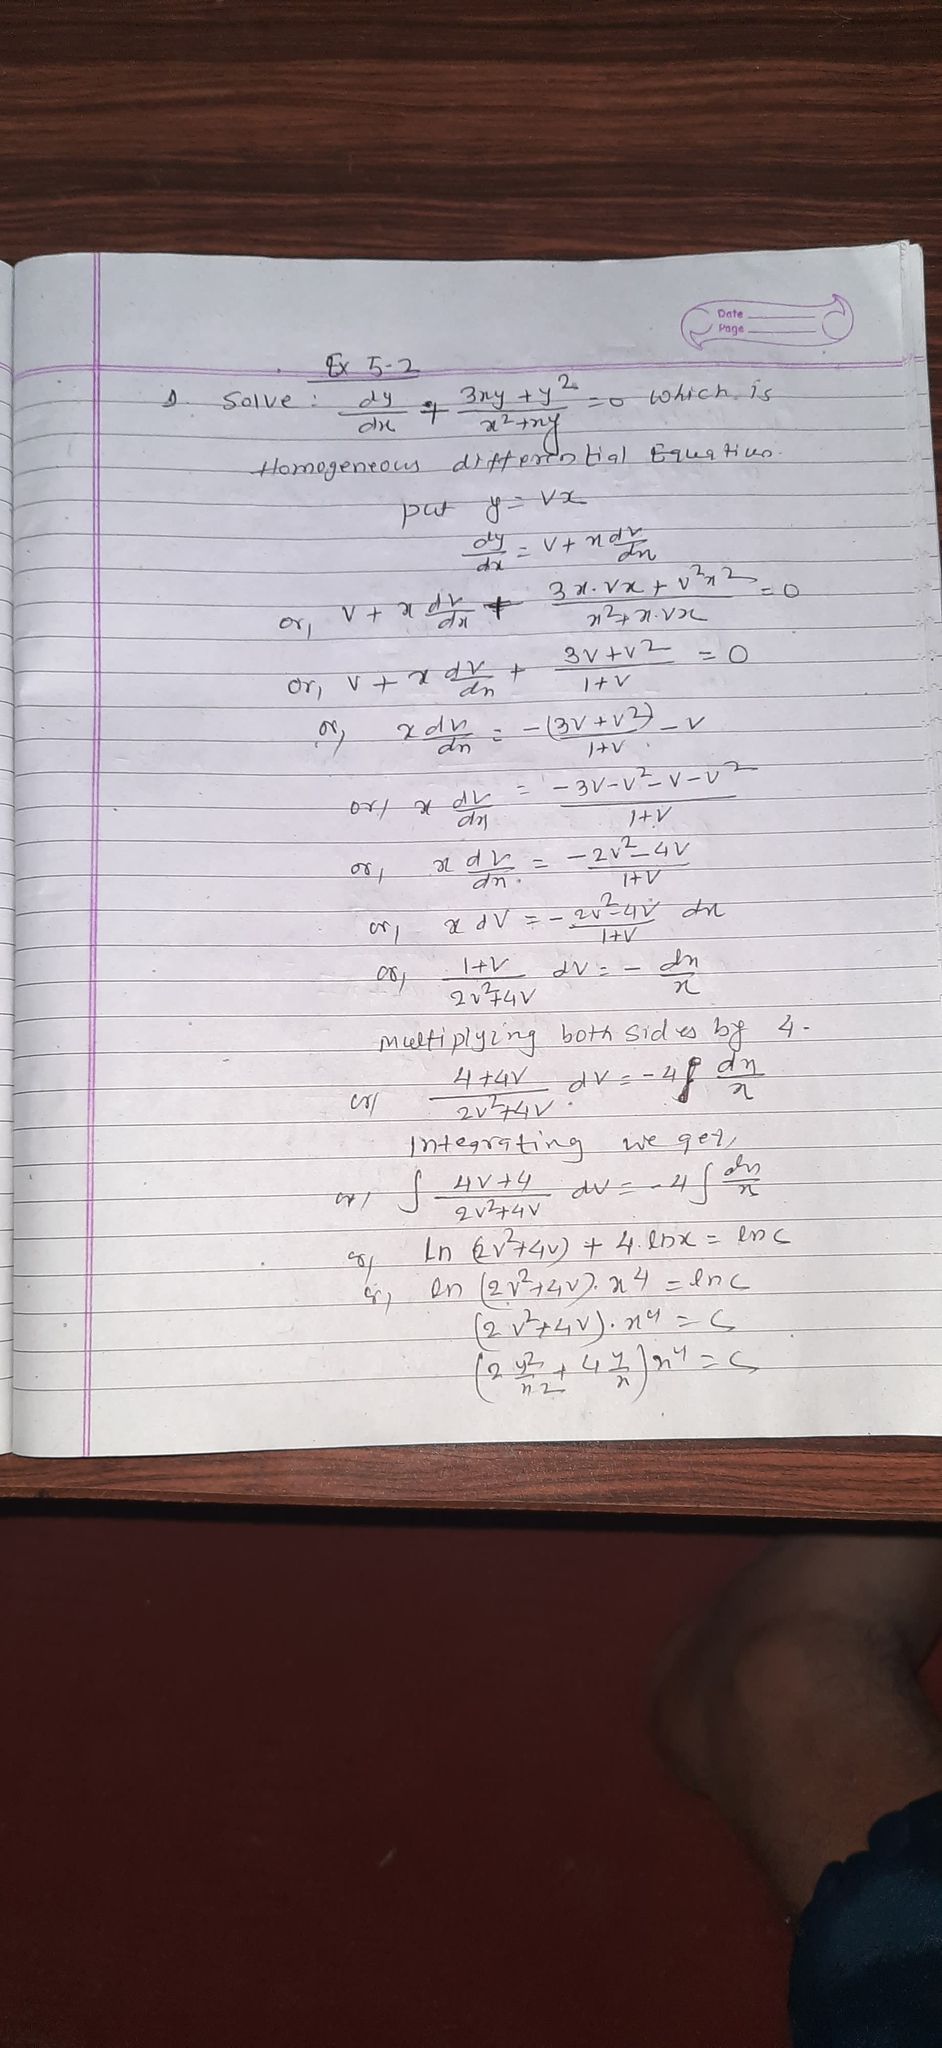 Date
Page
Ex 5-2
1. Solve: dy/dx + (3xy + y²)/(x² + xy) = 0 which is
Homogeneous differential Equation.
put y = vx
dy/dx = v + x dv/dx
or, v + x dv/dx + (3x.vx + v²x²)/(x² + x.vx) = 0
or, v + x dv/dx + (3v + v²)/(1+v) = 0
or, x dv/dx = -(3v + v²)/(1+v) - v
or, x dv/dx = (-3v - v² - v - v²)/(1+v)
or, x dv/dx = (-2v² - 4v)/(1+v)
or, x dv = (-2v² - 4v)/(1+v) dx
or, (1+v)/(2v²+4v) dv = - dx/x
multiplying both sides by 4.
or, (4+4v)/(2v²+4v) dv = -4∫ dx/x
Integrating we get,
or, ∫ (4v+4)/(2v²+4v) dv = -4 ∫ dx/x
or, ln (2v²+4v) + 4.lnx = lnc
or, ln (2v²+4v).x⁴ = lnc
(2v²+4v).x⁴ = c
(2 y²/x² + 4 y/x) x⁴ = c